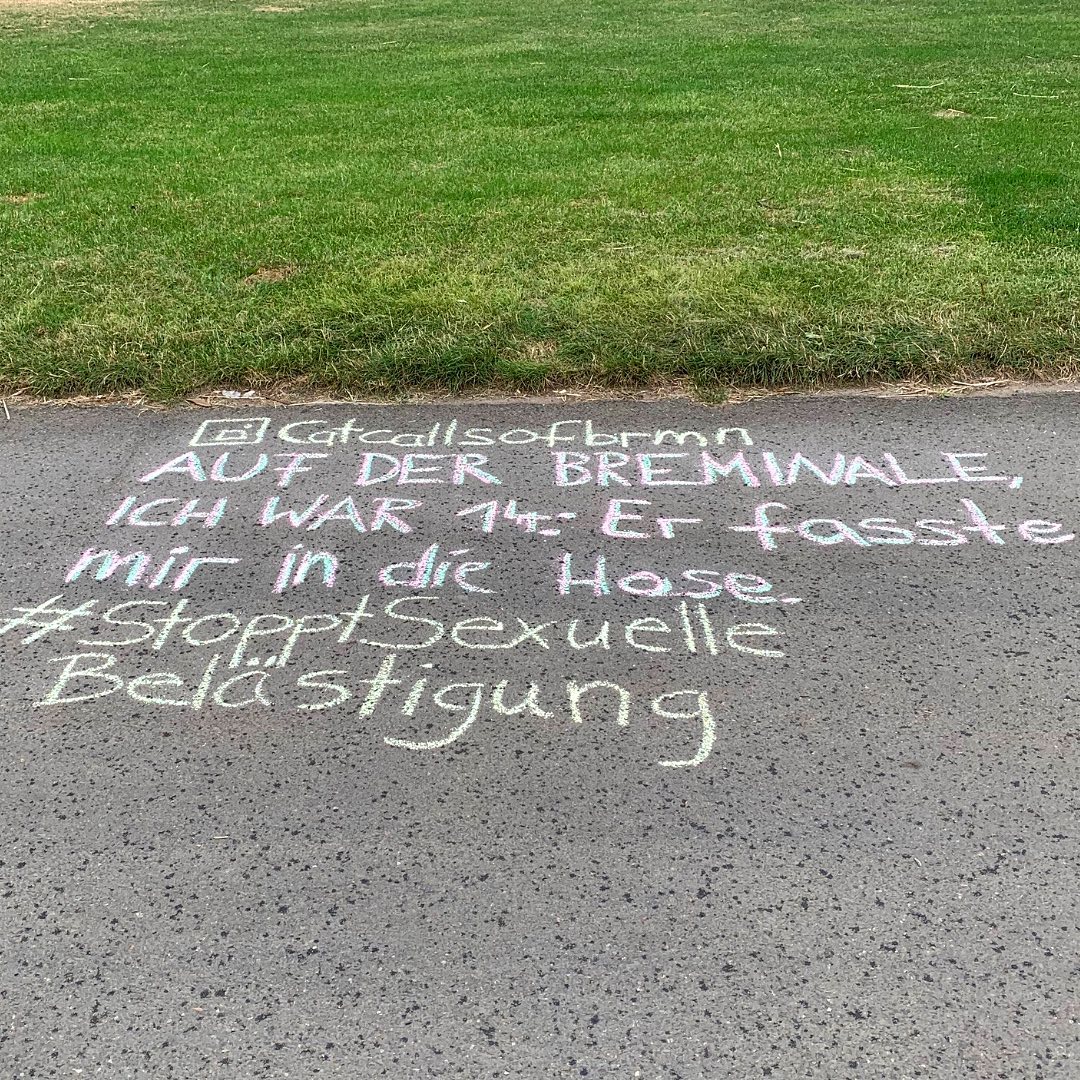 Catcallsofbrmn
AUF DER BREMINALE,
ICH WAR 14: Er fasste
mir in die Hose.
#StopptSexuelle
Belästigung